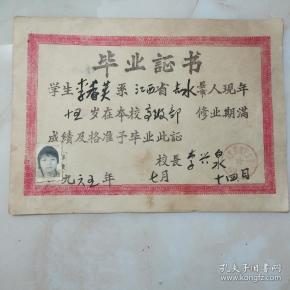 毕业証书
学生李春英系江西省吉水县人现年
十五岁在本校高级部修业期满
成绩及格准予毕业此証
校長李兴泉
一九六五年七月十四日
孔夫子旧书网